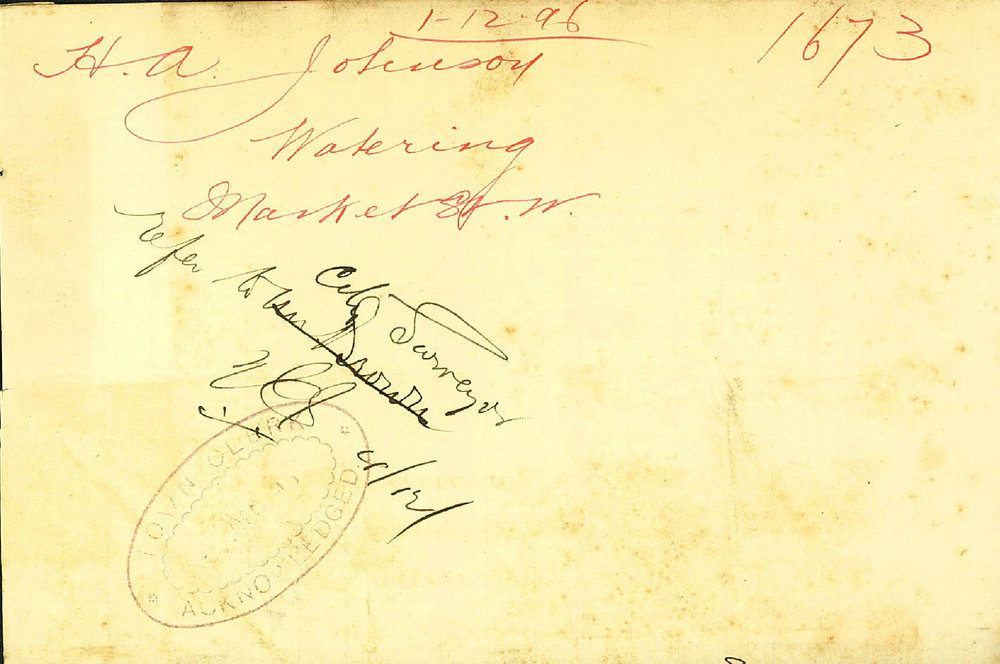 1-12-96
1673
H. A. Johnson
Watering
Market St. W.
Refer to Mr Brown
City Surveyor
4/12/
TOWN CLERK
ACKNOWLEDGED